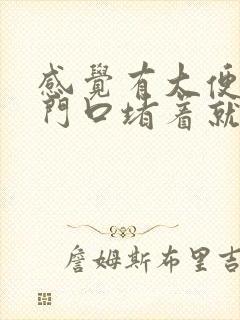 感覺有大便
門口堵著就
詹姆斯布里吉